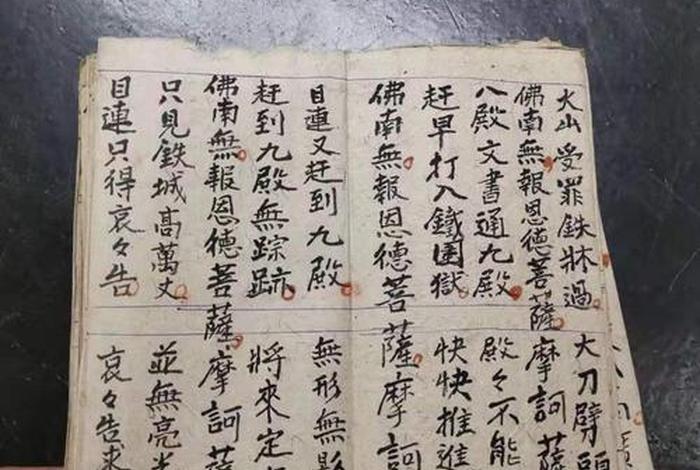 火山受罪鉄牀過大刀劈
佛南無報恩德菩薩摩訶薩
八殿文書通九殿殿々不能
赶早打入鐵圍獄快快推進
佛南無報恩德菩薩摩訶
目連又赶到九殿無形無影
赶到九殿無踪跡將來定
佛南無報恩德菩薩摩訶薩
只見鉄城高萬丈並無亮
目連只得哀々告哀々告求